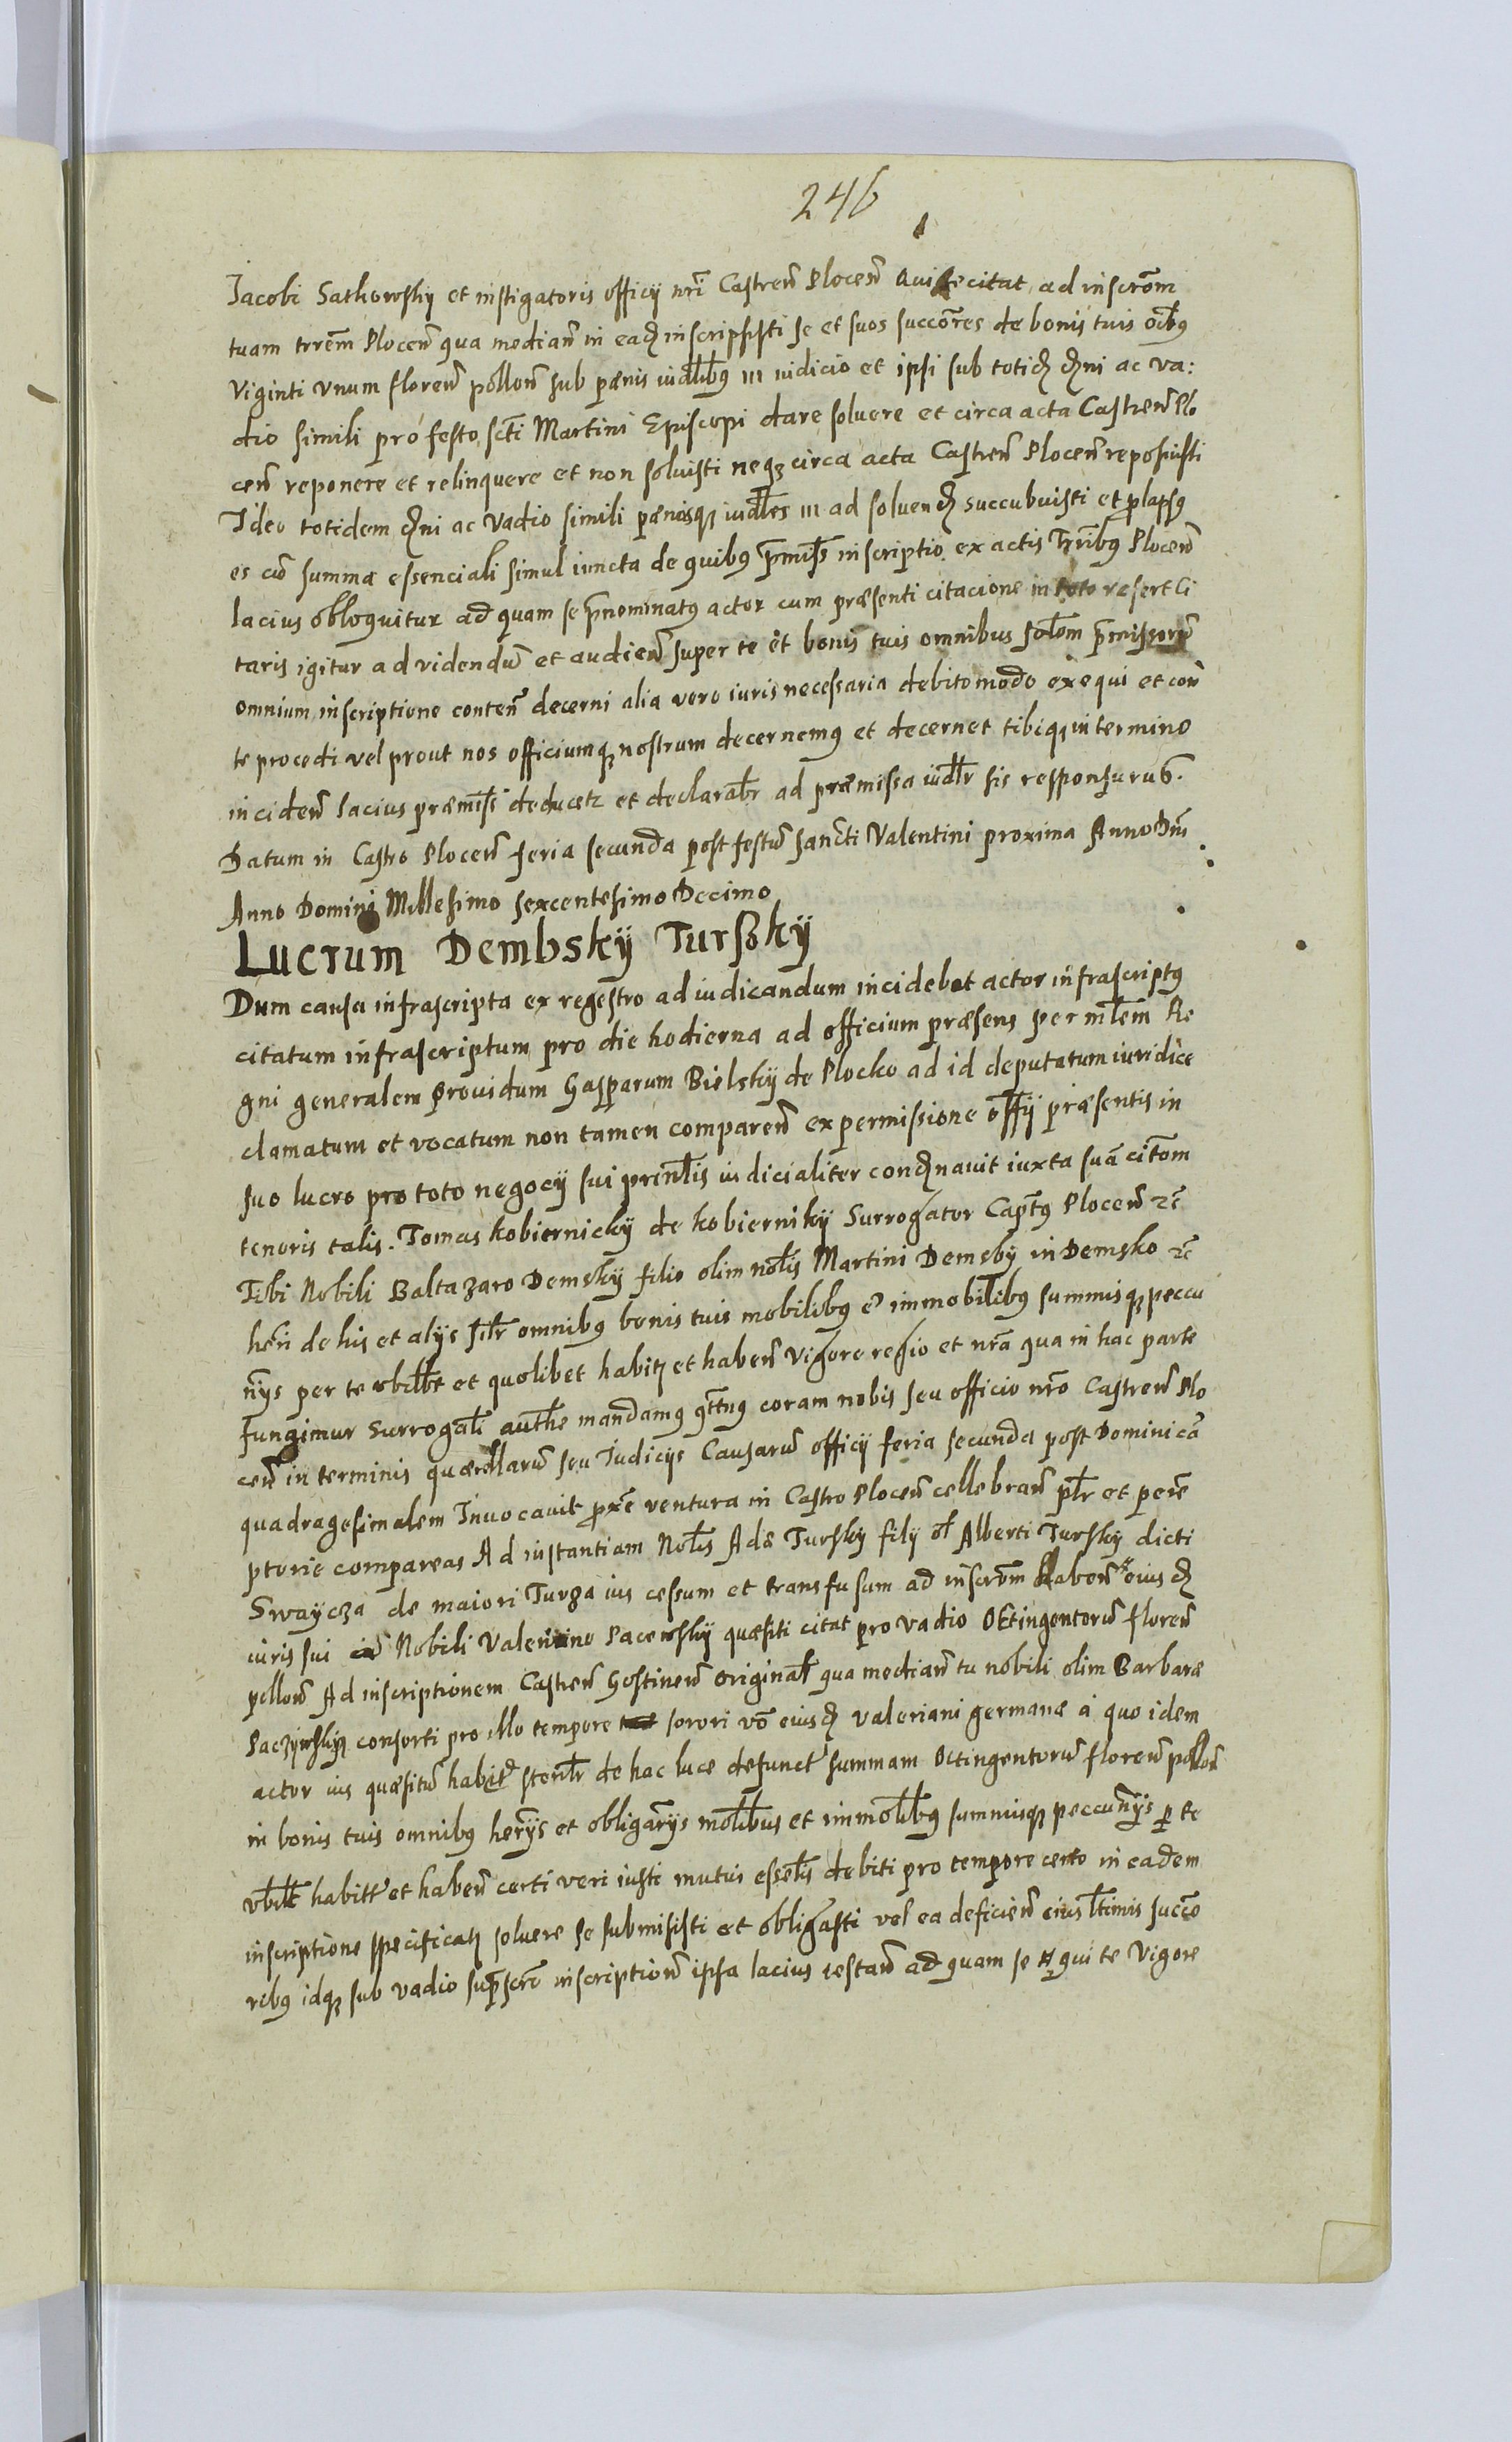 246
Jacobi Sathowsky et instigatoris officij nr̃i Castreñ Ploceñ Qui te citat ad inscrõm
tuam trrẽm Ploceñ qua mediañ in eaȡ inscripsisti se et suos succõres de bonis tuis oĩbꝰ
Viginti unum floreñ polloñ sub pœnis iudlibꝰ III iudicio et ipsi sub totiȡ ȡni ac va:
dio simili pro festo scti Martini Episcopi dare soluere et circa acta Castreñ Plo
ceñ reponere et relinquere et non soluisti neqꝫ circa acta Castreñ Ploceñ reposuisti
Ideo totidem ȡni ac vadio simili pœnisqꝫ iudles III ad soluenȡ succubuisti et plapsꝰ
es cũ summa essenciali simul iuncta de quibꝰ p̃miss̃ inscriptio ex actis Trr̃ibꝰ Ploceñ
lacius obloquitur ad quam se p̃nominatꝰ actor cum præsenti citacione in toto refert Ci
taris igitur ad videndũ et audieñ super te et bonis tuis omnibus solõem p̃missorũ
omnium inscriptione conteñ decerni alia vero iuris necessaria debito modo exequi et con
te procedi vel prout nos officiumqꝫ nostrum decernemꝰ et decernet tibiqꝫ in termino
incideñ lacius præmiss̃ deducetr et declarabr ad præmissa iudlr sis responsurus.
Datum in Castro Ploceñ feria secunda post festũ sancti Valentini proxima Anno Dñi
Anno Domini Millesimo sexcentesimo Decimo
Lucrum Dembsky Turssky
Dum causa infrascripta ex regestro ad iudicandum incidebat actor infrascriptꝰ
citatum infrascriptum pro die hodierna ad officium præsens per mlẽm Re
gni generalem Prouidum Gasparum Bielsky de Plocko ad id deputatum iuridice
clamatum et vocatum non tamen compareñ ex permissione offij præsentis in
suo lucro pro toto negocij sui prinlis iudicialiter conȡnauit iuxta suã citõm
tenoris talis. Tomas Kobiernicky de Kobierniky Surrogator Captꝰ Ploceñ ꝛc̃
Tibi Nobili Baltazaro Demsky filio olim nolis Martini Demsby in Demsko ꝛc̃
heri de his et alijs slr omnibꝰ bonis tuis mobilibꝰ et immobilibꝰ summisqꝫ peccu
nijs per te ubilibt et quolibet habitꝫ et habeñ vigore regio et nr̃a qua in hac parte
fungimur Surrogali authe mandamꝰ qttnꝰ coram nobis seu officio nr̃o Castreñ Plo
ceñ in terminis quærellarũ seu Judicijs Causarũ officij feria secunda post Dominicã
quadragesimalem Inuocauit pxẽ ventura in Castro Ploceñ cellebrañ plr et perẽ
ptorie compareas Ad instantiam Nolis Adæ Tursky filij ol Alberti Tursky dicti
Swaycza de maiori Turza ius cessum et transfusum ad inscrõm habeñ eiusȡ
iuris sui Nobili Valentino Pacewsky quæsiti citat pro vadio Octingentorũ floreñ
polloñ Ad inscriptionem Castreñ Gostineñ original qua mediañ tu nobili olim Barbaræ
Paczywskiꝫ consorti pro illo tempore sorori võ eiusȡ Valeriani germanæ à quo idem
actor ius quæsitũ habet stenlr de hac luce defunct summam Octingentorũ floreñ polloñ
in bonis tuis omnibꝰ herijs et obligarijs molibus et immolibꝰ summisqꝫ peccunijs p te
ubilbt habitt et habeñ certi veri iusti mutui esslis debiti pro tempore certo in eadem
inscriptione specificatꝫ soluere se submisisti et obligasti vel ea deficieñ eius ltimis succo
ribꝰ idqꝫ sub vadio suprascr̃o inscriptionẽ ipsa lacius testañ ad quam se qui te Vigore